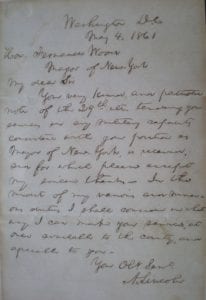 Washington D.C.
May 4, 1861
Hon. Fernando Wood
Mayor of New York
My dear Sir
You very kind and patriotic
note of the 29th ult. tendering your
services in any military capacity
consistent with your position as
Mayor of New York, is received,
and for which please accept
my sincere thanks. In the
midst of my various and numer-
ous duties I shall consider in what
way I can make your services at
once available to the country, and
agreeable to you.
Your Obt. Servt.
A. Lincoln